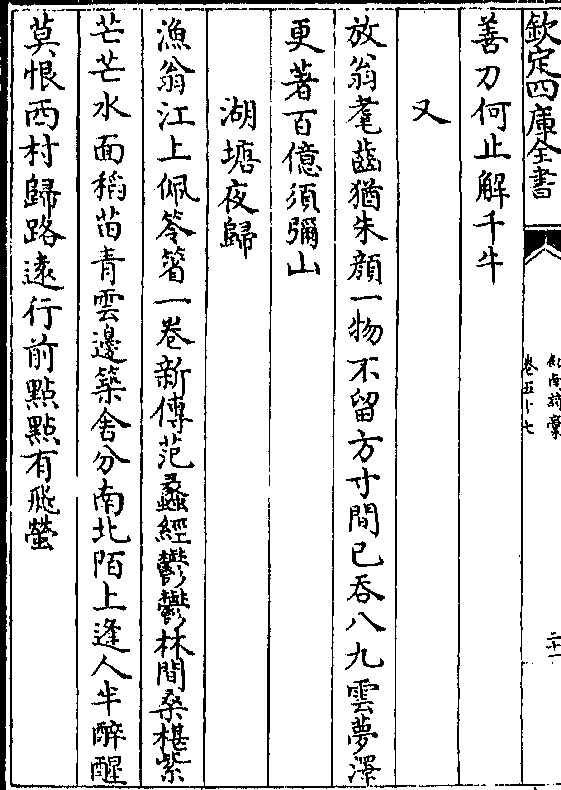 欽定四庫全書
劒南詩藁
卷五十七
二十一
善刀何止解千牛
又
放翁耄齒猶朱顔一物不留方寸間已吞八九雲夢澤
更著百億須彌山
湖塘夜歸
漁翁江上佩笭箵一卷新傳范蠡經鬱鬱林間桑椹紫
芒芒水面稻苗青雲邊築舍分南北陌上逢人半醉醒
莫恨西村歸路逺行前點點有飛螢